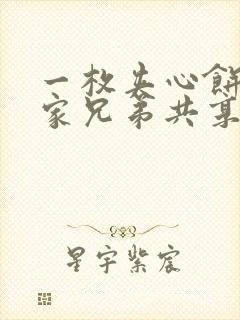 一枚夹心餅
家兄弟共某
星宇紫宸